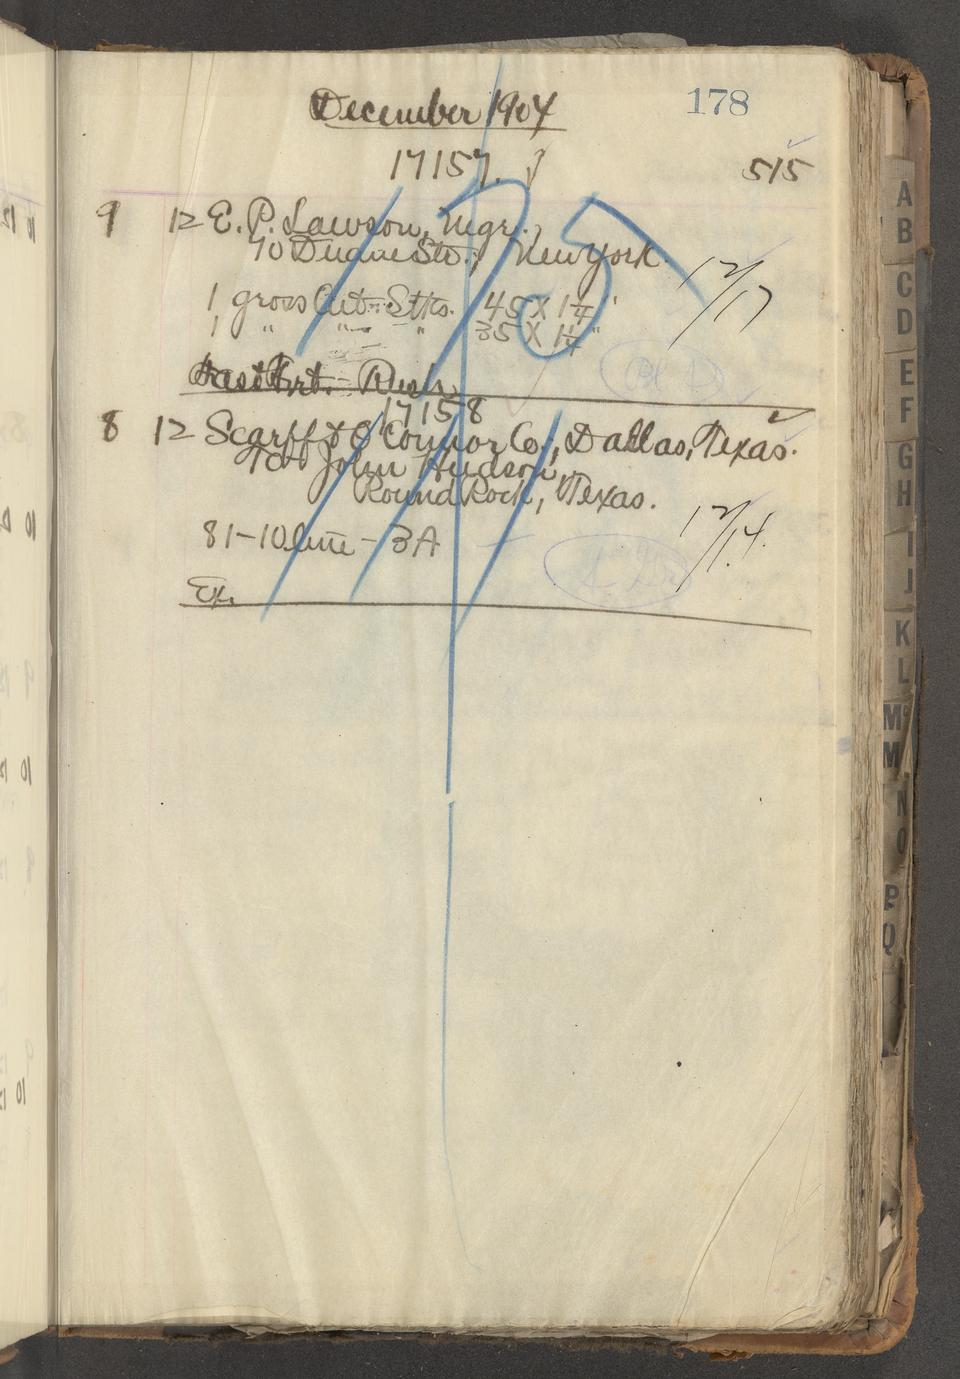 December 1904
178
17157.
515
9 12 E. P. Lawson, Mgr.
70 Duane Str., New York.
12/17
1 gross Cut. Stks. 45 X 1¼"
1 " " " 35 X 1¼"
Fast Frt. - Rush.
17158
8 12 Scarff & O'Connor Co., Dallas, Texas.
To John Hudson,
Round Rock, Texas.
12/14.
81-10 line - 3A
Ex.
A
B
C
D
E
F
G
H
I
J
K
L
Mc
M
N
O
P
Q